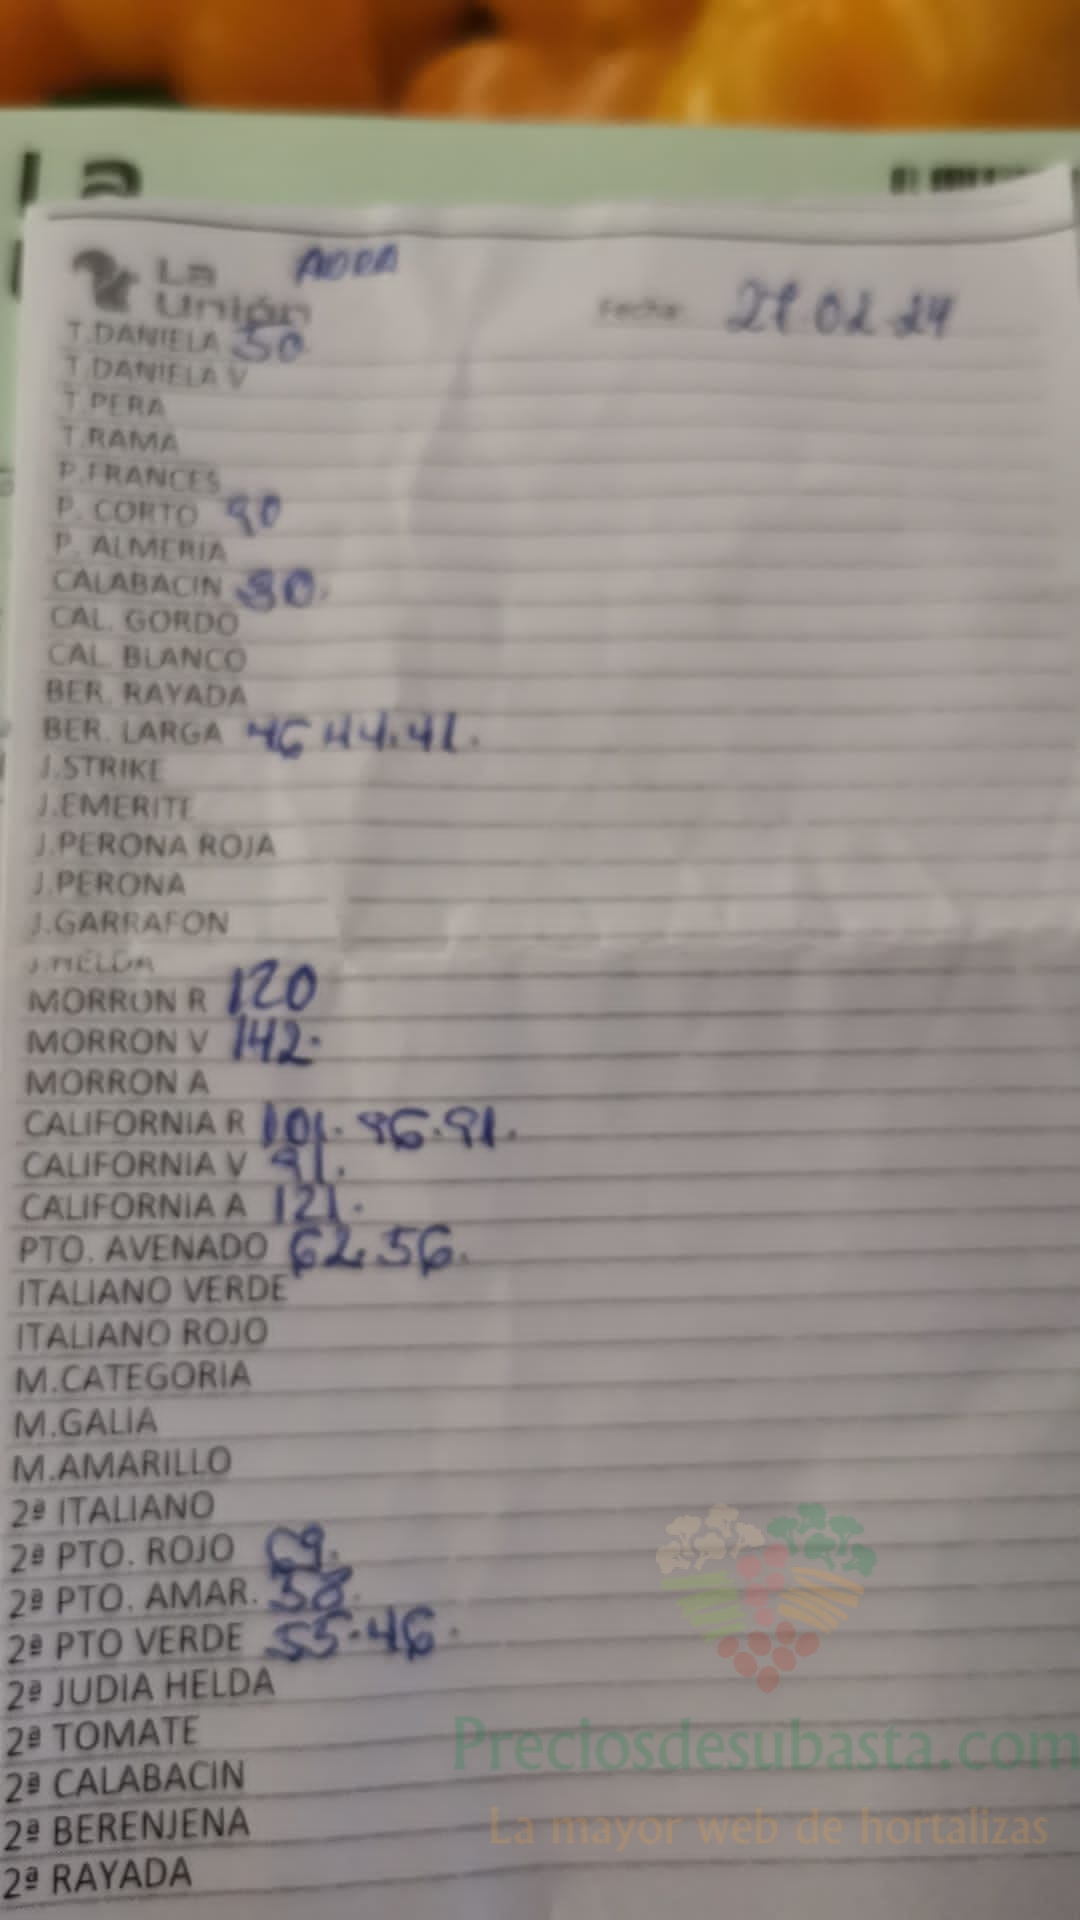 La
La
Unión
ADRA
Fecha: 27.02.24
T.DANIELA 50
T.DANIELA V
T.PERA
T.RAMA
P.FRANCES
P. CORTO 90
P. ALMERIA
CALABACIN 30.
CAL. GORDO
CAL. BLANCO
BER. RAYADA
BER. LARGA 46 44.41.
J.STRIKE
J.EMERITE
J.PERONA ROJA
J.PERONA
J.GARRAFON
J.HELDA
MORRON R 120
MORRON V 142.
MORRON A
CALIFORNIA R 101. 96.91.
CALIFORNIA V 91.
CALIFORNIA A 121.
PTO. AVENADO 62.56.
ITALIANO VERDE
ITALIANO ROJO
M.CATEGORIA
M.GALIA
M.AMARILLO
2ª ITALIANO
2ª PTO. ROJO 69.
2ª PTO. AMAR. 58.
2ª PTO VERDE 55.46.
2ª JUDIA HELDA
2ª TOMATE
2ª CALABACIN
2ª BERENJENA
2ª RAYADA
Preciosdesubasta.com
La mayor web de hortalizas